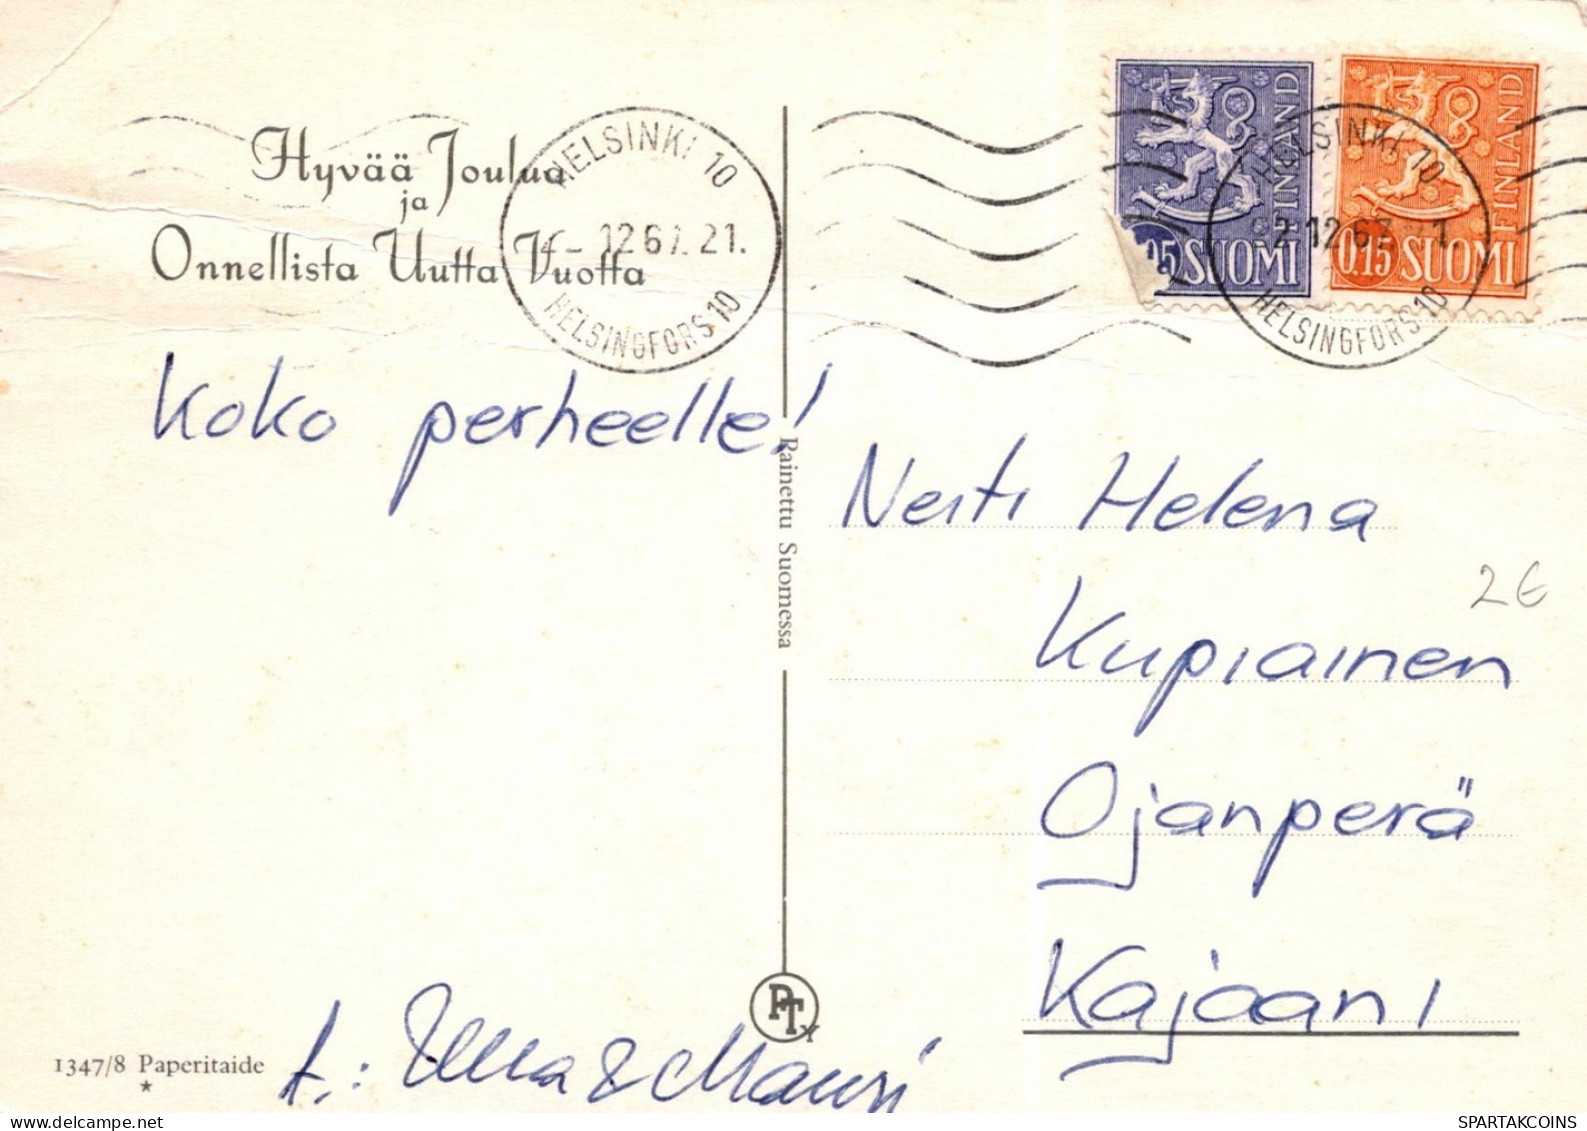 Hyvää Joulua
ja
Onnellista Uutta Vuotta
HELSINKI 10
-.12.67.21.
HELSINGFORS 10
FINLAND
05 SUOMI
FINLAND
0.15 SUOMI
HELSINKI 10
12.67
HELSINGFORS 10
Koko perheelle!
Rainettu Suomessa
Neiti Helena
Kupiainen
Ojanperä
Kajaani
2€
PTY
1347/8 Paperitaide
t.: Ulla & Mauri
SPARTAKCOINS.COM